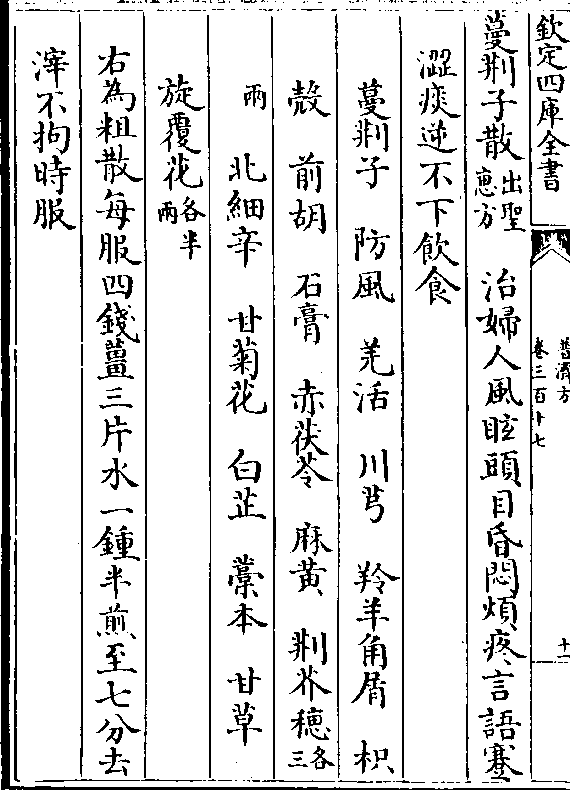 欽定四庫全書
普濟方
卷三百十七
十一
蔓荆子散出聖惠方 治婦人風眩頭目昏悶煩疼言語蹇
澀痰逆不下飲食
蔓荆子 防風 羌活 川芎 羚羊角屑 枳
殼 前胡 石膏 赤茯苓 麻黄 荆芥穗各三
兩 北細辛 甘菊花 白芷 藁本 甘草
旋覆花各半兩
右為粗散每服四錢薑三片水一鍾半煎至七分去
滓不拘時服